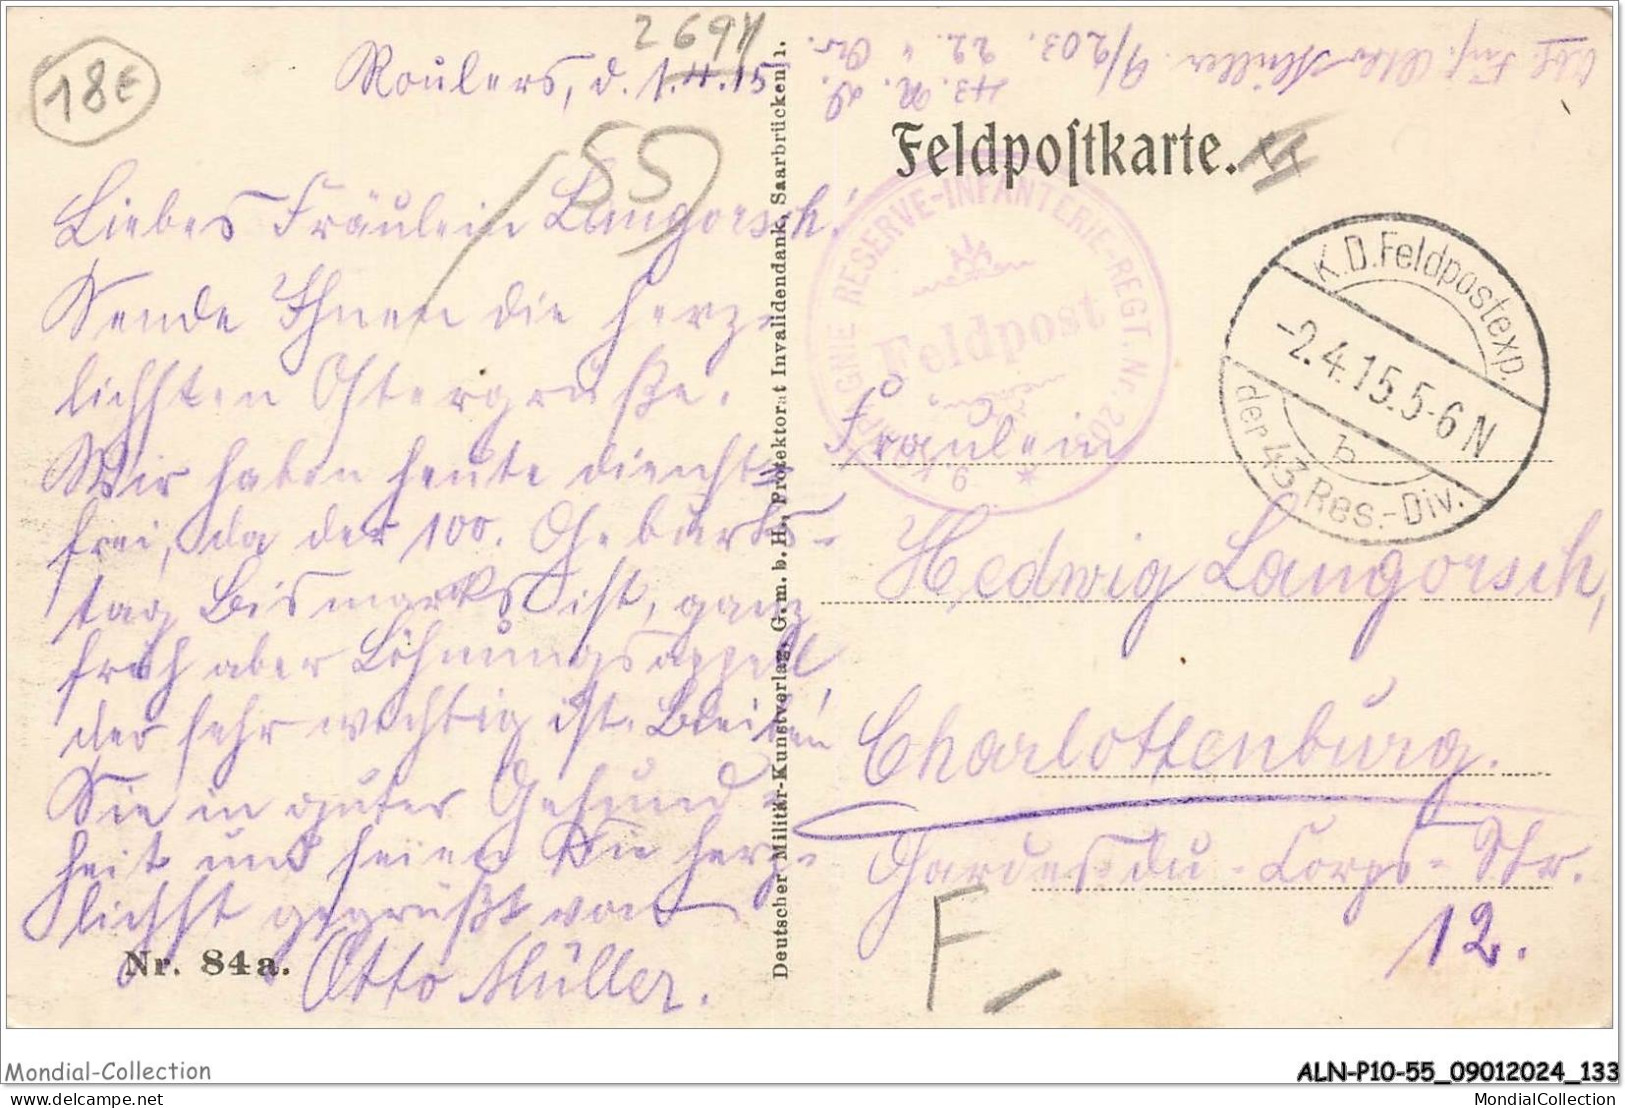 18€
269
Roulers, d. 1.4.15
55
Liebes Fräulein Langorsch!
Sende Ihnen die herz-
lichsten Ostergrüße.
Wir haben heute dienst-
frei, da der 100. Geburts-
tag Bismarks ist, ganz
früh aber Löhnungsappell
der sehr wichtig ist. Bleiben
Sie in guter Gesund-
heit und seien Sie herz-
lichst gegrüßt von
Otto Müller.
Nr. 84a.
Deutscher Militär-Kunstverlag, G. m. b. H., Protektorat Invalidendank, Saarbrücken 1.
Abs. Inf. Otto Müller 9/203.
43. R. D.
22. "
Feldpostkarte.
RESERVE-INFANTERIE-REGT. Nr. 203
Feldpost
K.D.Feldpostexp.
-2.4.15.5-6N
b
der 43 Res.-Div.
Fräulein
Hedwig Langorsch,
Charlottenburg.
Gardes-du-Corps-Str.
12.
F
Mondial-Collection
ALN-P10-55_09012024_133
delcampe.net
MondialCollection